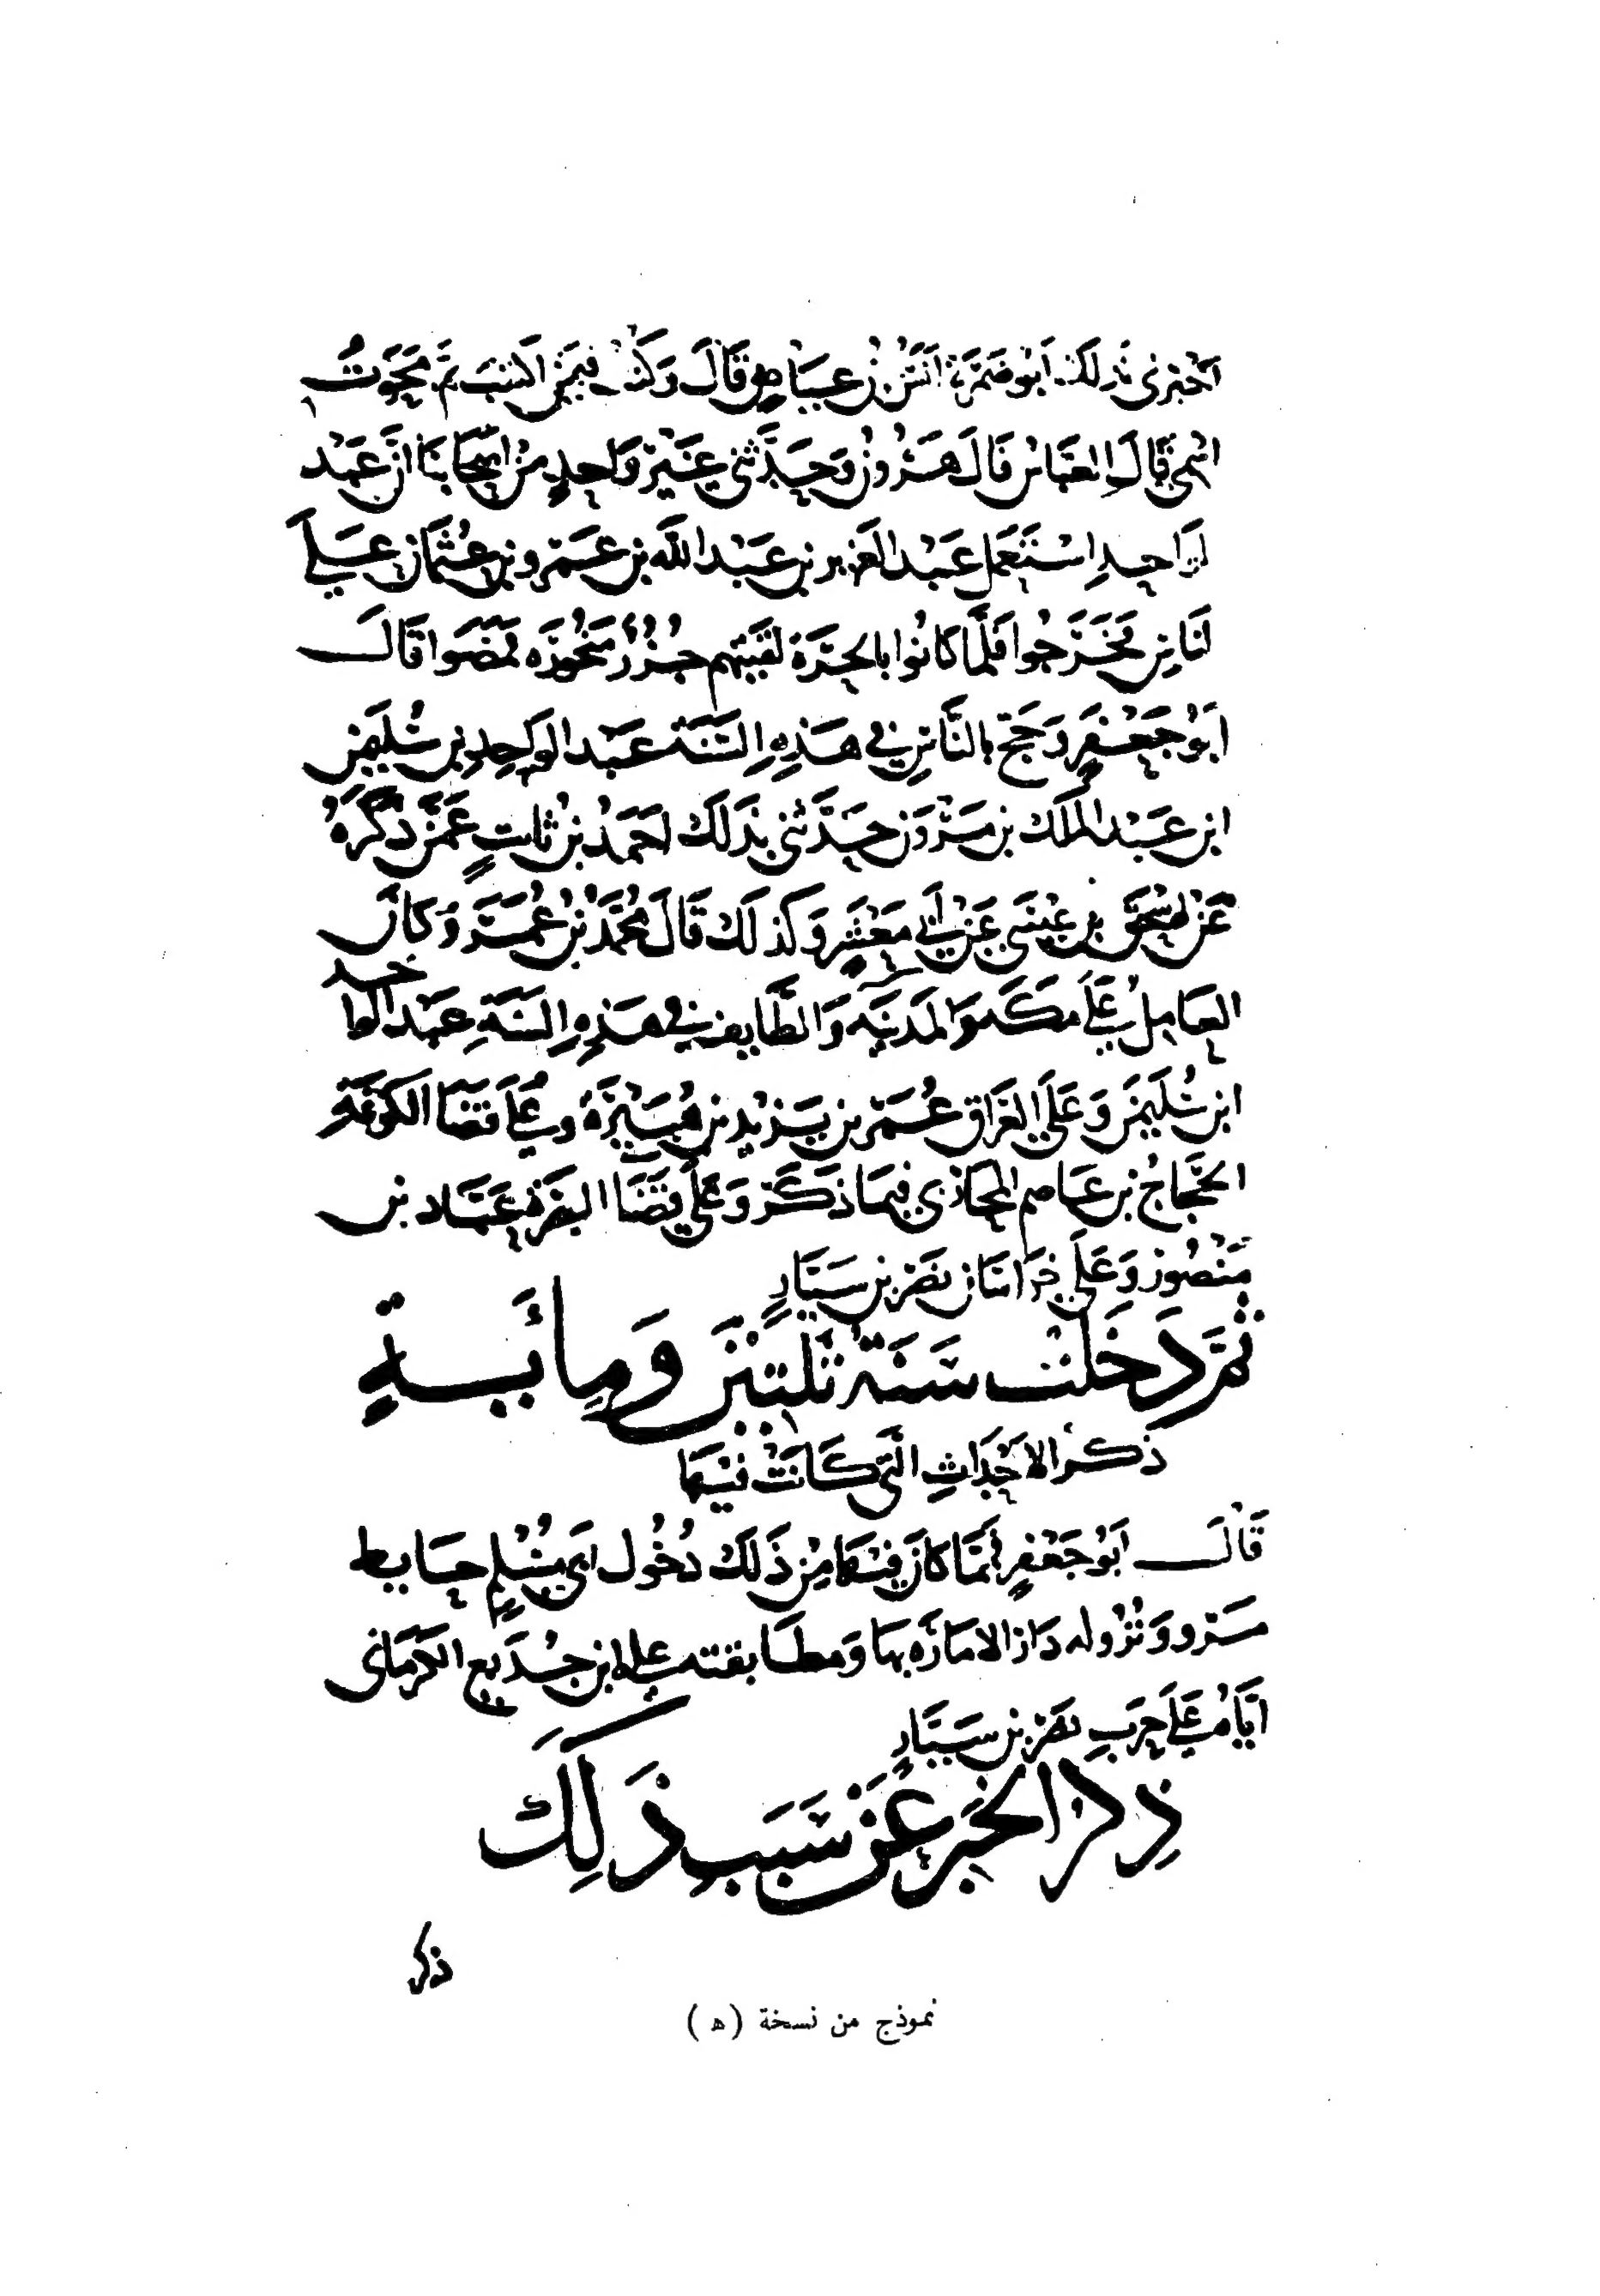 اخبرني بذلك ابو ضمرة انس بن عياض قال وكنت فيمن اكتتب ثم محوت
اسمي قال العباس قال هرون وحدثني غير واحد من اصحابنا ان عبد
الواحد استعمل عبد العزيز بن عبد الله بن عمرو بن عثمان على
الناس فخرجوا فلما كانوا بالحرة لقيتهم جزر منحورة فمضوا قال
ابو جعفر وحج بالناس في هذه السنة عبد الواحد بن سليمن
ابن عبد الملك بن مروان حدثني بذلك احمد بن ثابت عمن ذكره
عن اسحق بن عيسى عن ابي معشر وكذلك قال محمد بن عمر وكان
العامل على مكة والمدينة والطايف في هذه السنة عبد الواحد
ابن سليمن وعلى العراق عمر بن يزيد بن هبيرة وعلى قضا الكوفة
الحجاج بن عاصم المحاربي فيما ذكر وعلى قضا البصرة عباد بن
منصور وعلى خراسان نصر بن سيار
ثم دخلت سنة ثلثين ومائة
ذكر الاحداث التي كانت فيها
قال ابو جعفر فمما كان فيها من ذلك دخول ابي مسلم حايط
مرو ونزوله دار الامارة بها ومطابقته علي بن جديع الكرماني
اياه على حرب نصر بن سيار
ذكر الخبر عن سبب ذلك
ذكر
نموذج من نسخة (ه)